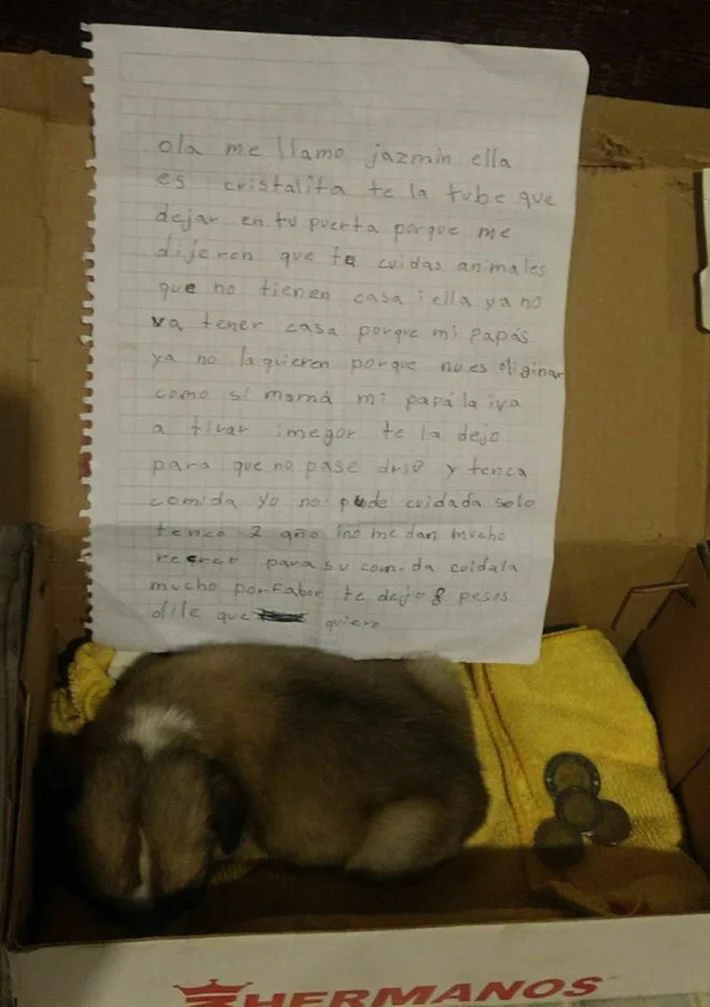 ola me llamo jazmin ella
es cristalita te la tube que
dejar en tu puerta porque me
dijeren que te cuidas animales
que no tienen casa i ella ya no
va tener casa porque mi papás
ya no la quieren porque no es oliginar
como si mamá mi papá la iva
a tirar imegor te la dejo
para que no pase drio y tenca
comida yo no pude cuidada solo
tenco 2 año ino me dan mucho
recreo para su comida cuidala
mucho porfabor te dejo 8 pesos
dile que quiero
3HERMANOS